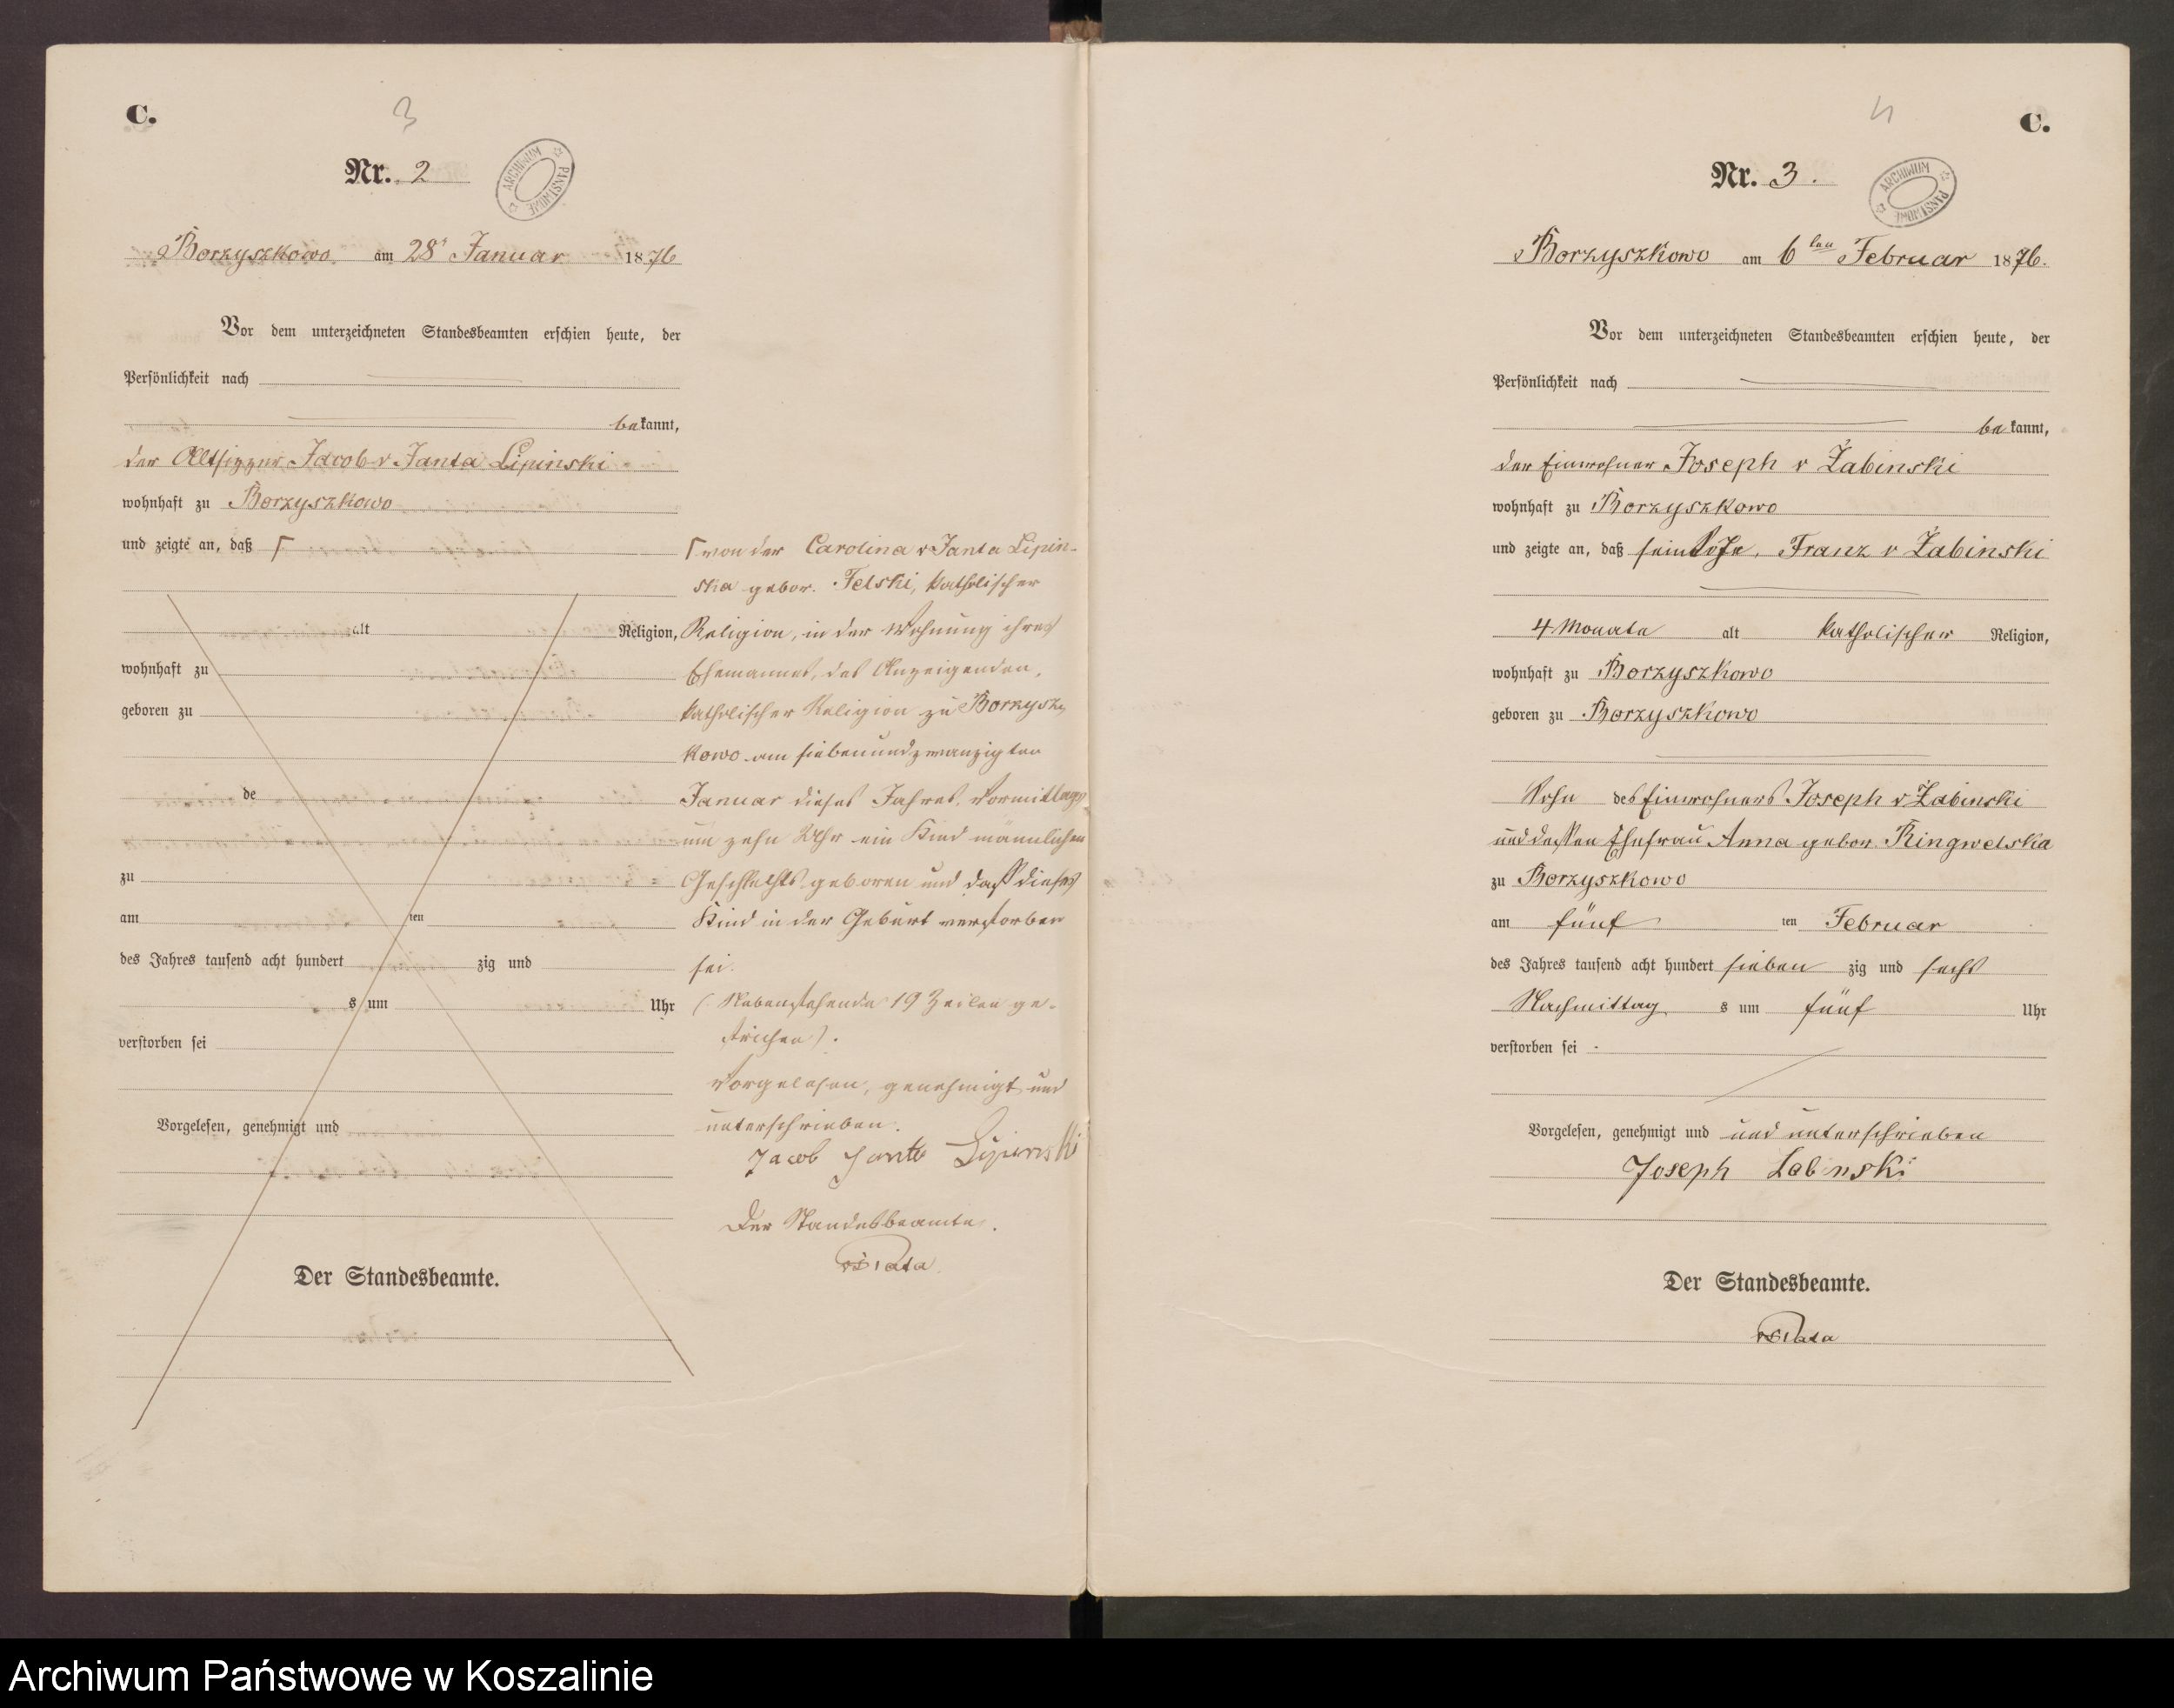 C.
3
Nr. 2
ARCHIWUM PAŃSTWOWE
Borzyszkowo am 28t Januar 1876
Vor dem unterzeichneten Standesbeamten erschien heute, der
Persönlichkeit nach
bekannt,
der Altsitzer Jacob v Janta Lipinski
wohnhaft zu Borzyszkowo
und zeigte an, daß Γ
alt Religion,
wohnhaft zu
geboren zu
de
zu
am ten
des Jahres tausend acht hundert zig und
s um Uhr
verstorben sei
Vorgelesen, genehmigt und
Der Standesbeamte.
Γ von der Carolina v Janta Lipin-
ska gebor. Felski, katholischer
Religion, in der Wohnung ihres
Ehemannes, des Anzeigenden,
katholischer Religion zu Borzysz
kowo am siebenundzwanzigten
Januar dieses Jahres, Vormittags
um zehn Uhr ein Kind männlichen
Geschlechts geboren und daß dieses
Kind in der Geburt verstorben
sei.
(Nebenstehende 19 Zeilen ge-
strichen).
Vorgelesen, genehmigt und
unterschrieben.
Jacob Janta Lipinski
Der Standesbeamte.
C.
4
Nr. 3.
ARCHIWUM PAŃSTWOWE
Borzyszkowo am 6ten Februar 1876.
Vor dem unterzeichneten Standesbeamten erschien heute, der
Persönlichkeit nach
bekannt,
der Einwohner Joseph v Żabinski
wohnhaft zu Borzyszkowo
und zeigte an, daß sein Sohn, Franz v Żabinski
4 Monate alt katholischer Religion,
wohnhaft zu Borzyszkowo
geboren zu Borzyszkowo
Sohn des Einwohners Joseph v Żabinski
und dessen Ehefrau Anna gebor. Ringwelska
zu Borzyszkowo
am fünf ten Februar
des Jahres tausend acht hundert sieben zig und sechs
Nachmittag s um fünf Uhr
verstorben sei -
Vorgelesen, genehmigt und und unterschrieben
Joseph Labinski
Der Standesbeamte.
Archiwum Państwowe w Koszalinie